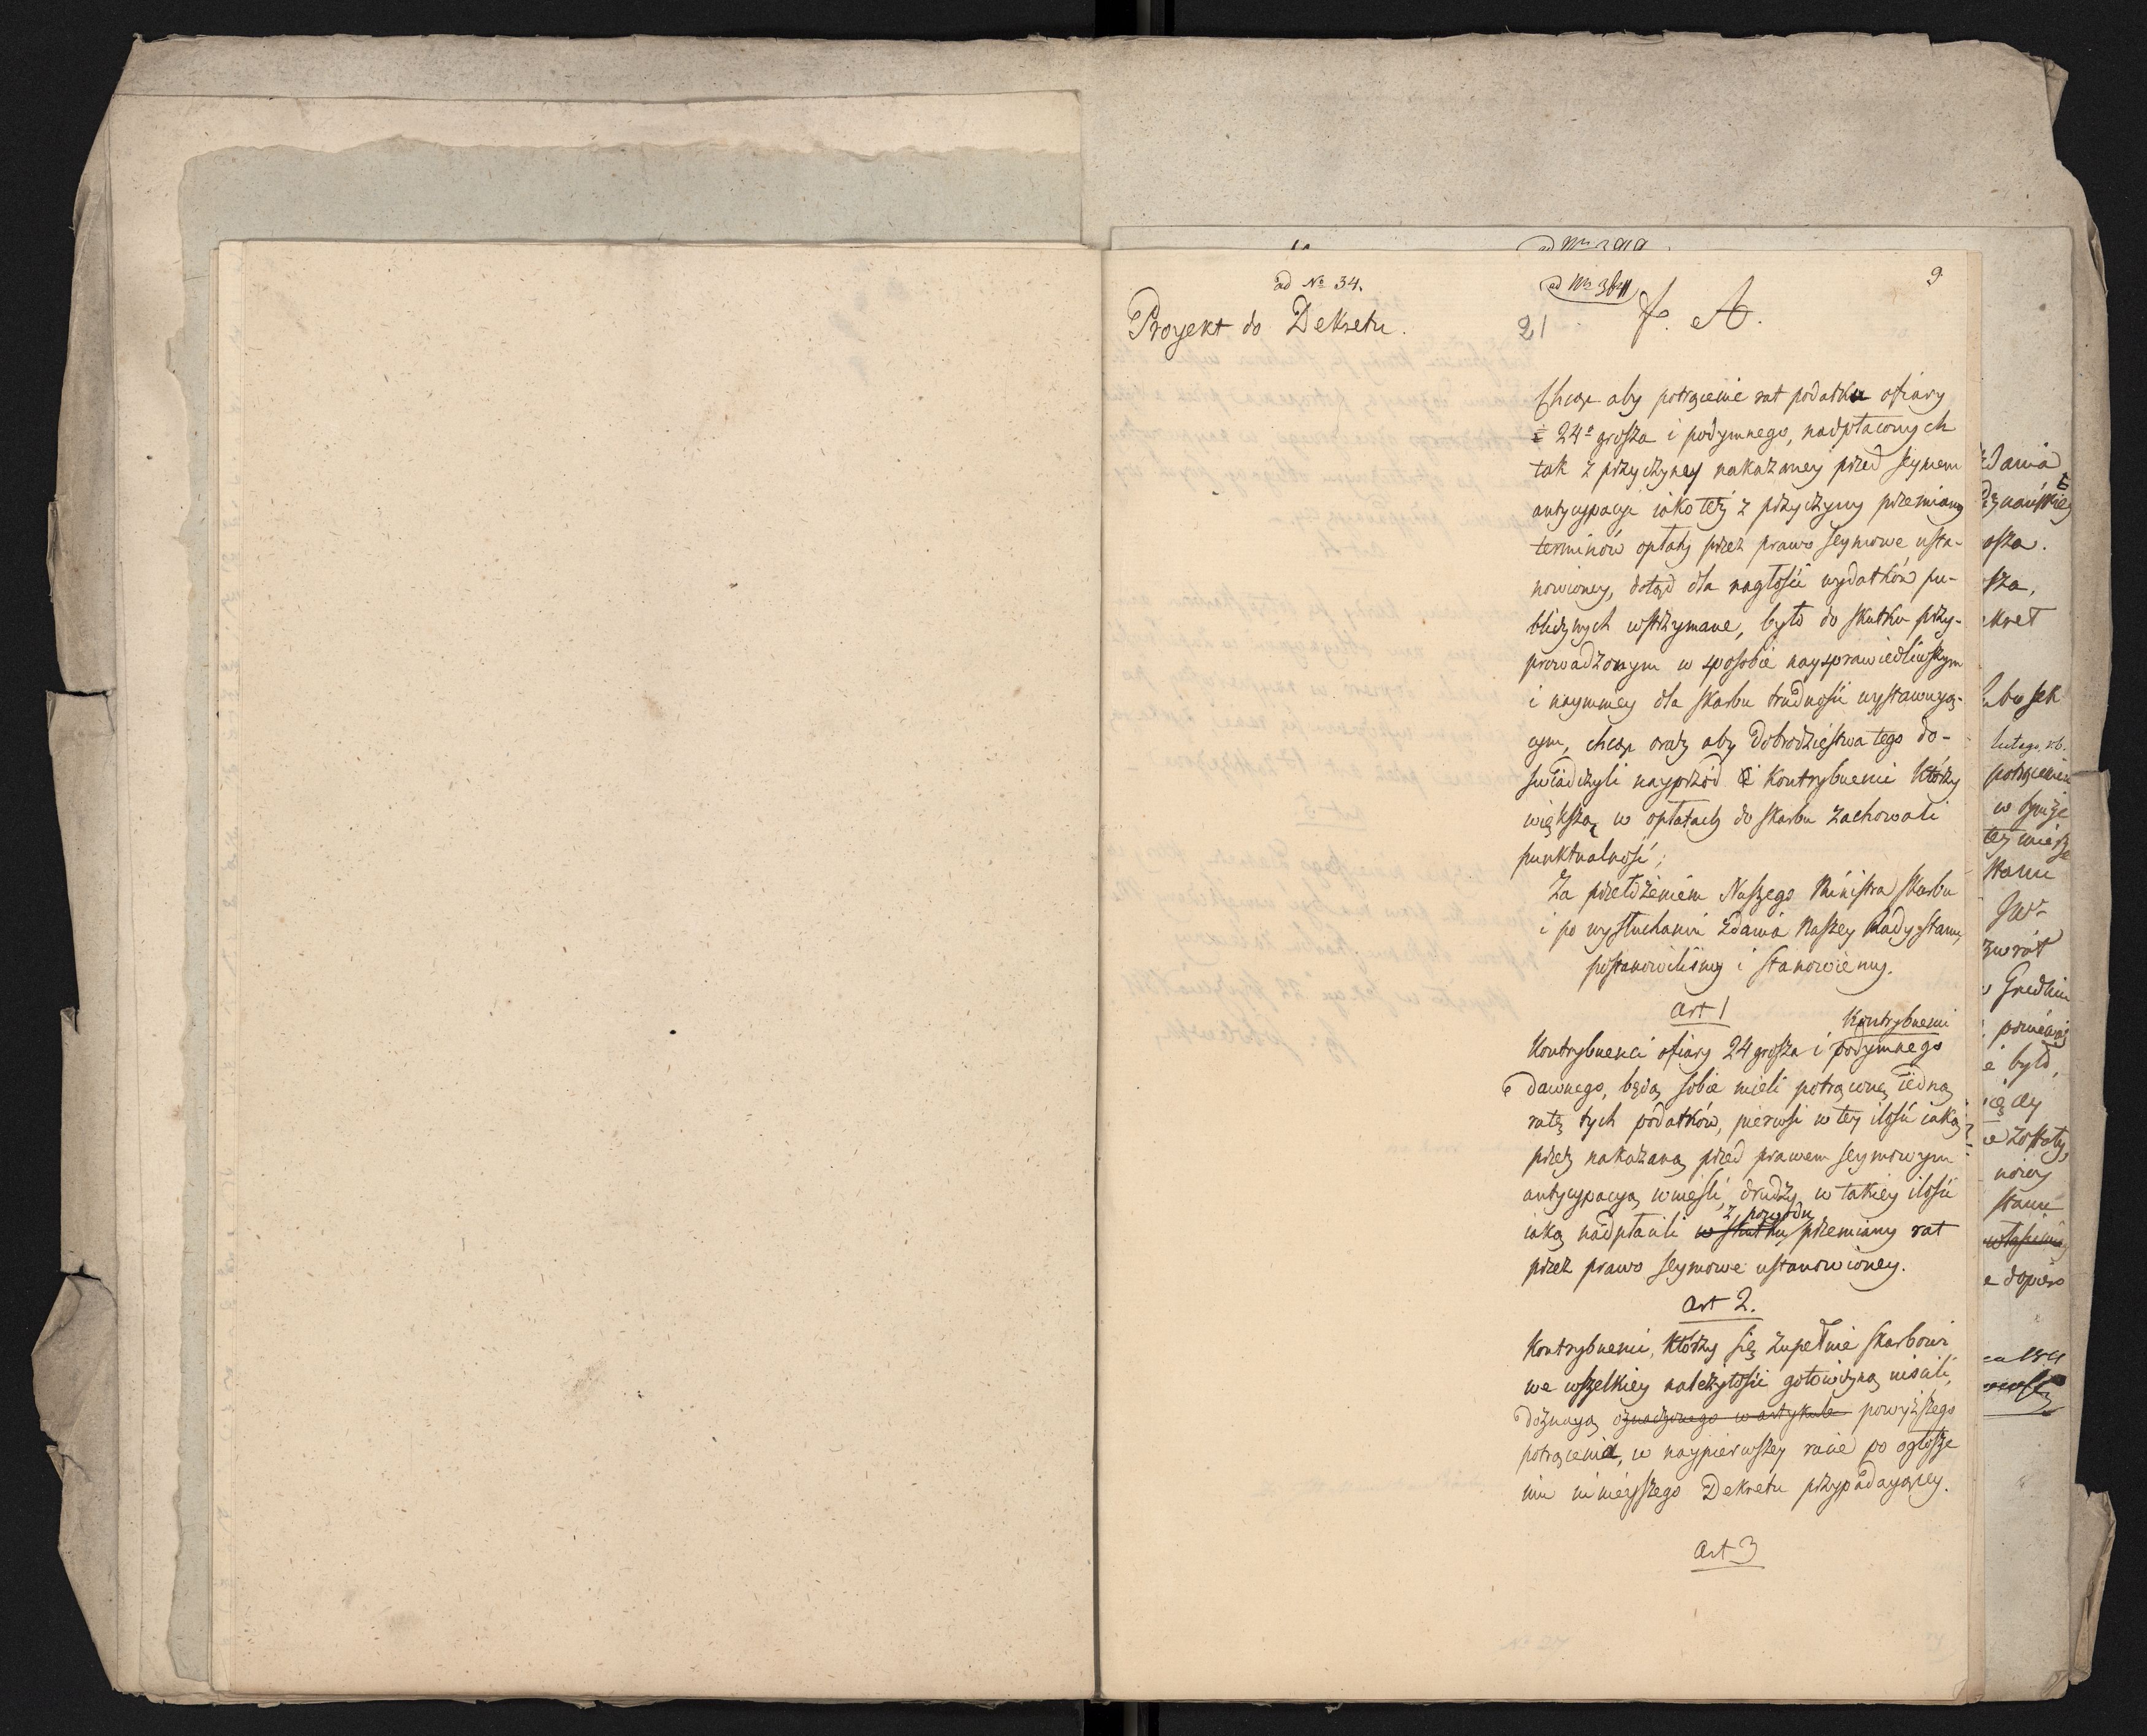 ad No 34.
Proyekt do Dekretu.
ad Nro 3641
9
21
F. A.
Chcąc aby potrącenie rat podatku ofiary
24o grosza i podymnego, nadpłaconych
tak z przyczyney nakazaney przed seymem
antycypacyi iako też z przyczyny przemiany
terminów opłaty przez prawo seymowe usta-
nowioney, dotąd dla nagłości wydatków pu-
blicznych wstrzymane, było do skutku przy-
prowadzonym w sposobie naysprawiedliwszym
i naymniey dla skarbu trudności wystawuyą-
cym, chcąc oraz aby dobrodzieystwa tego do-
świadczyli nayprzód ci Kontrybuenci którzy
większą w opłatach do skarbu zachowali
punktualność;
Za przełożeniem Naszego Ministra Skarbu
i po wysłuchaniu zdania Naszey Rady stanu,
postanowiliśmy i stanowiemy.
Art 1
Kontrybuenci
Kontrybuenci ofiary 24 grosza i podymnego
dawnego, będą sobie mieli potrąconą iedną
ratę tych podatków, pierwsi w tey ilości iaką
przez nakazaną przed prawem seymowym
antycypacyą wnieśli, drudzy w takiey ilości
z powodu
iaką nadpłacili w skutku przemiany rat
przez prawo seymowe ustanowioney.
Art 2.
Kontrybuenci, którzy się zupełnie skarbowi
we wszelkiey należytości gotowizną uiścili,
doznayą oznaczonego w artykule powyższego
potrącenia, w naypierwszey racie po ogłosze
niu ninieyszego Dekretu przypadayącey.
Art 3
zdania
osza.
sza,
kret
lutego, rb.
potrącenia
w tymże
stanu
zwrot
było,
nowy
stanu
dopiero